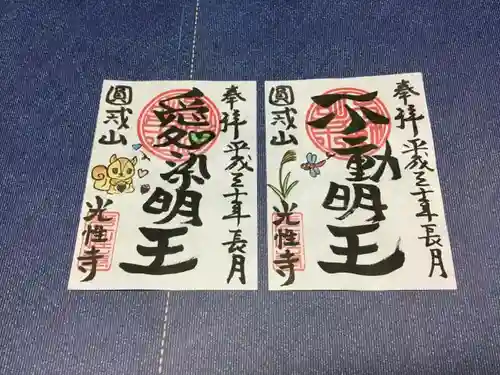 奉拝 平成三十年長月
不動明王
圓戒山
光性寺
奉拝 平成三十年長月
愛染明王
圓戒山
光性寺